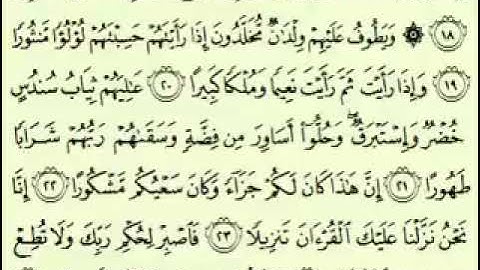 ١٨ ۞ وَيَطُوفُ عَلَيْهِمْ وِلْدَٰنٌ مُّخَلَّدُونَ إِذَا رَأَيْتَهُمْ حَسِبْتَهُمْ لُؤْلُؤًا مَّنثُورًا
١٩ وَإِذَا رَأَيْتَ ثَمَّ رَأَيْتَ نَعِيمًا وَمُلْكًا كَبِيرًا ٢٠ عَٰلِيَهُمْ ثِيَابُ سُندُسٍ
خُضْرٌ وَإِسْتَبْرَقٌ ۖ وَحُلُّوٓا۟ أَسَاوِرَ مِن فِضَّةٍ وَسَقَىٰهُمْ رَبُّهُمْ شَرَابًا
طَهُورًا ٢١ إِنَّ هَٰذَا كَانَ لَكُمْ جَزَآءً وَكَانَ سَعْيُكُم مَّشْكُورًا ٢٢ إِنَّا
نَحْنُ نَزَّلْنَا عَلَيْكَ ٱلْقُرْءَانَ تَنزِيلًا ٢٣ فَٱصْبِرْ لِحُكْمِ رَبِّكَ وَلَا تُطِعْ